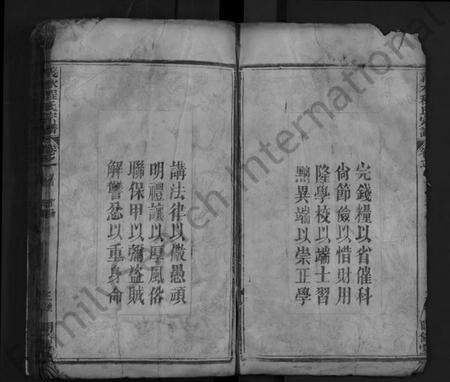 完錢糧以省催科
尙節儉以惜財用
隆學校以端士習
黜異端以崇正學
講法律以儆愚頑
明禮讓以厚風俗
聯保甲以弭盜賊
解讐忿以重身命
International